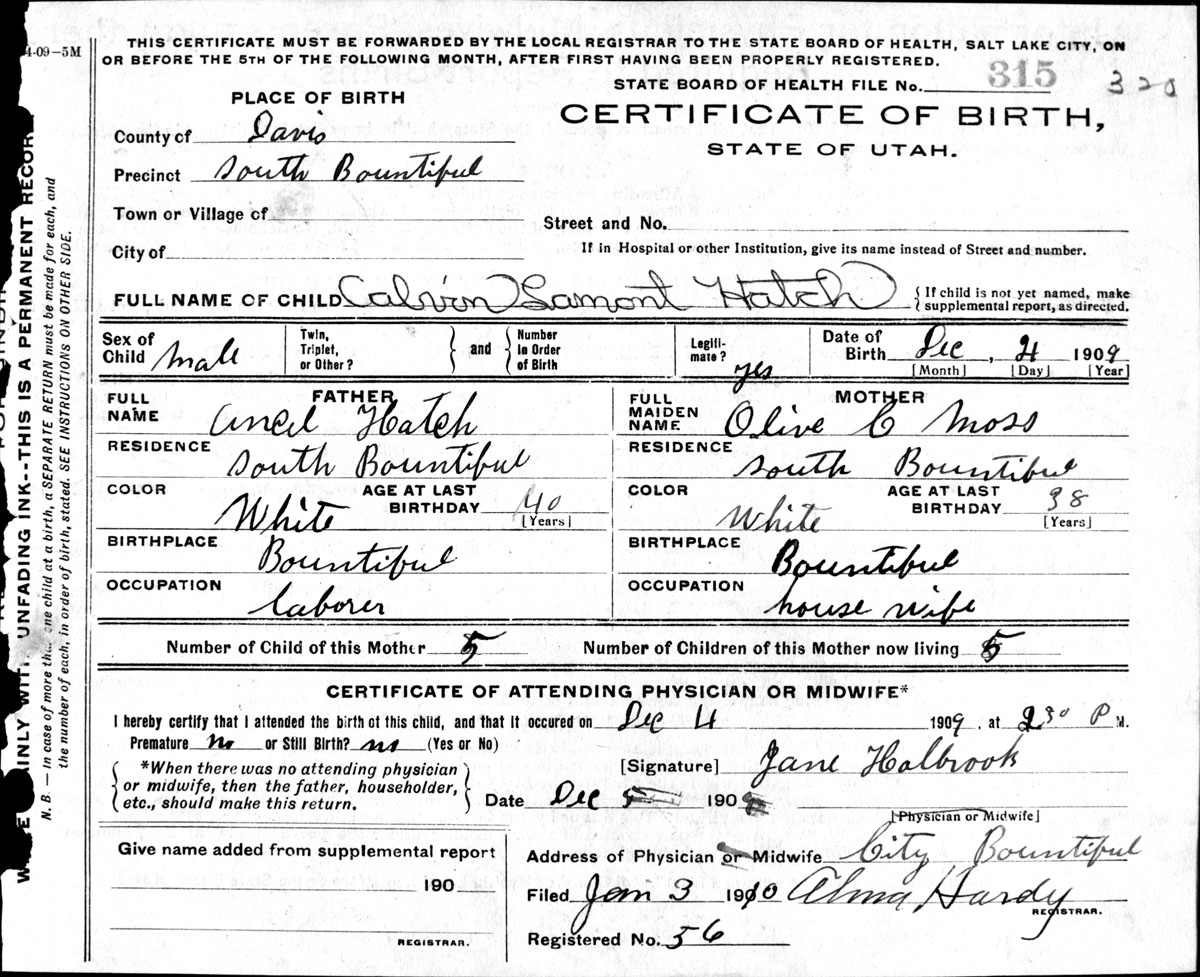 4-09-5M
THIS CERTIFICATE MUST BE FORWARDED BY THE LOCAL REGISTRAR TO THE STATE BOARD OF HEALTH, SALT LAKE CITY, ON
OR BEFORE THE 5TH OF THE FOLLOWING MONTH, AFTER FIRST HAVING BEEN PROPERLY REGISTERED.
STATE BOARD OF HEALTH FILE No. 315 320
PLACE OF BIRTH
CERTIFICATE OF BIRTH,
STATE OF UTAH.
County of Davis
Precinct South Bountiful
Town or Village of
Street and No.
City of
If in Hospital or other Institution, give its name instead of Street and number.
FULL NAME OF CHILD Calvin Lamont Hatch { If child is not yet named, make
supplemental report, as directed.
Sex of Child Male Twin, Triplet, or Other? } and { Number In Order of Birth Legiti-mate? yes Date of Birth Dec, 4 1909
[Month] [Day] [Year]
FATHER
FULL NAME Ancel Hatch
RESIDENCE South Bountiful
COLOR White AGE AT LAST BIRTHDAY 40
[Years]
BIRTHPLACE Bountiful
OCCUPATION laborer
MOTHER
FULL MAIDEN NAME Olive C Moss
RESIDENCE South Bountiful
COLOR White AGE AT LAST BIRTHDAY 38
[Years]
BIRTHPLACE Bountiful
OCCUPATION house wife
Number of Child of this Mother 5 Number of Children of this Mother now living 5
CERTIFICATE OF ATTENDING PHYSICIAN OR MIDWIFE*
I hereby certify that I attended the birth of this child, and that it occured on Dec 4 1909, at 2 30 P M.
Premature no or Still Birth? no (Yes or No)
*When there was no attending physician
or midwife, then the father, householder,
etc., should make this return.
[Signature] Jane Holbrook
Date Dec 5 190
[Physician or Midwife]
Give name added from supplemental report
190
REGISTRAR.
Address of Physician or Midwife City Bountiful
Filed Jan 3 1910 Alma Hardy
REGISTRAR.
Registered No. 56
UNFADING INK--THIS IS A PERMANENT RECORD
N. B. — In case of more than one child at a birth, a SEPARATE RETURN must be made for each, and
the number of each, in order of birth, stated. SEE INSTRUCTIONS ON OTHER SIDE.